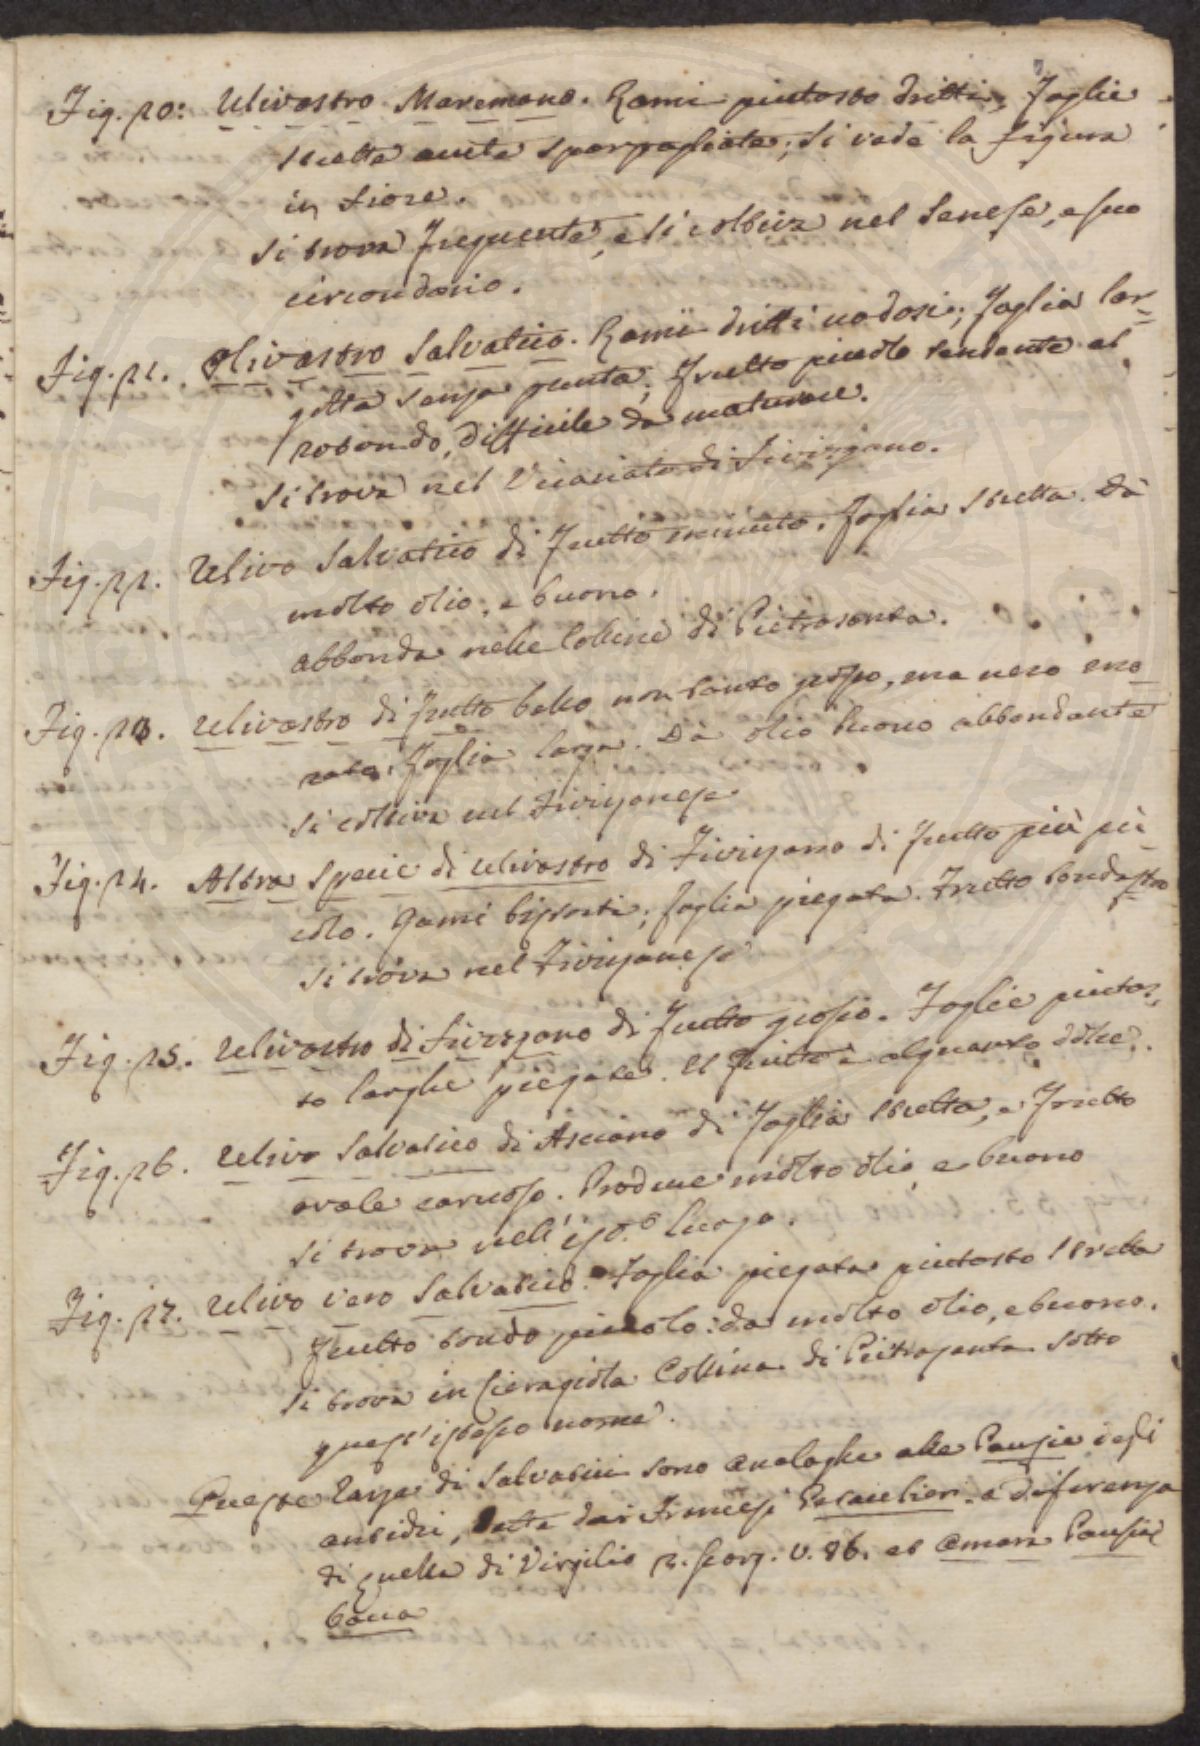 Fig. 20: Ulivastro Maremano. Rami piutosto dritti, Foglie
strette acute sparpagliate; si vede la figura
in fiore.
Si trova frequente, e si coltiva nel Senese, e suo
circondario.
Fig. 21. Olivastro Salvatico. Rami dritti nodosi; foglia lar-
getta senza punta; frutto piccolo tendente al
rotondo, difficile da maturare.
Si trova nel Vicariato di Fivizzano.
Fig. 22. Ulivo Salvatico di frutto minuto. Foglia stretta. Dà
molto olio, e buono.
abbonda nelle Colline di Pietrasanta.
Fig. 23. Ulivastro di frutto bello non tanto grosso, ma nero mo-
rato, foglia larga. Dà olio buono abbondante
si coltiva nel Fivizzanese
Fig. 24. Altra Specie di Ulivastro di Fivizzano di frutto più pi-
colo. Rami bistorti; foglia piegata. Frutto tondastro
si trova nel Fivizzanese
Fig. 25. Ulivastro di Fivizzano di frutto grosso. Foglie piutos-
to larghe piegate. Il frutto è alquanto dolce.
Fig. 26. Ulivo Salvatico di Asciano di foglia stretta, e frutto
ovale carnoso. Produce molto olio, e buono
si trova nell' isto. luogo.
Fig. 27. Ulivo vero Salvatico. Foglia piegata piutosto stretta
frutto tondo piccolo: da molto olio, e buono.
Si trova in Ceragiola Collina di Pietrasanta sotto
quest' istesso nome.
Queste razze di Salvatici sono analoghe alle Pausie degli
antichi, dette dai Francesi a diferenza
di quella di Virgilio 2. Georg. v. 86. et amara Pausia
bacca